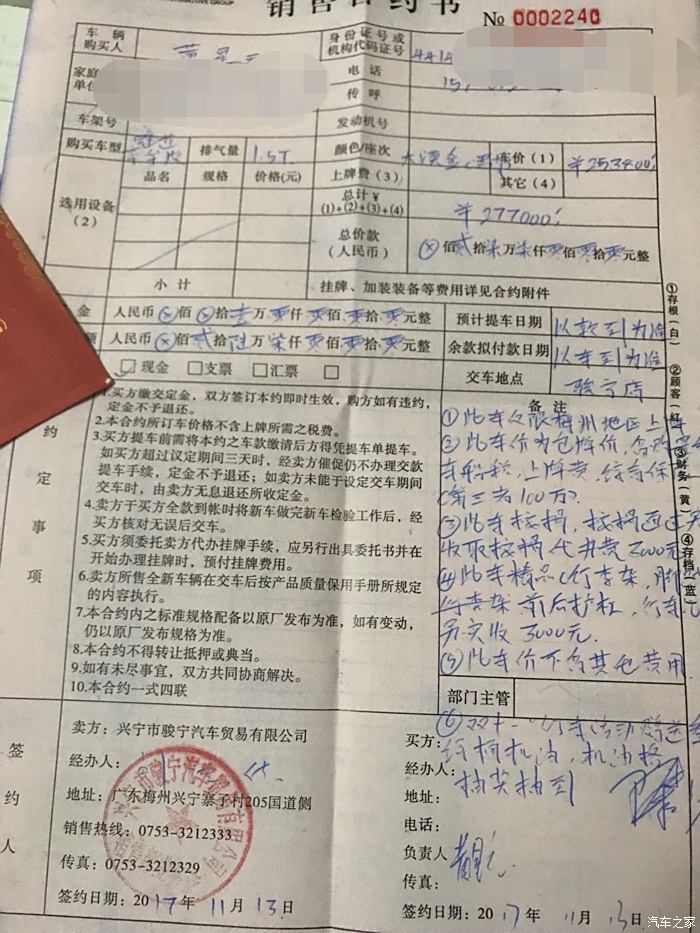 销售合约书
No 0002240
车辆购买人
身份证号或机构代码证号 441
电话 15
传呼
车架号 发动机号
购买车型 排气量 1.5T 颜色/座次 车价(1) ¥253400
品名 规格 价格(元) 上牌费(3) 其它(4)
选用设备(2)
总计¥ (1)+(2)+(3)+(4) ¥277000
总价款(人民币) ⊗佰贰拾柒万柒仟零佰零拾零元整
小计 挂牌、加装装备等费用详见合约附件
金 人民币⊗佰⊗拾壹万零仟零佰零拾零元整 预计提车日期 以款到为准
额 人民币⊗佰贰拾陆万柒仟零佰零拾零元整 余款拟付款日期 以车到为准
现金 支票 汇票 交车地点 骏宁店
约定事项
1.买方缴交定金，双方签订本约即时生效，购方如有违约，
定金不予退还。
2.本合约所订车价格不含上牌所需之税费。
3.买方提车前需将本约之车款缴清后方得凭提车单提车。
如买方超过议定期间三天时，经卖方催促仍不办理交款
提车手续，定金不予退还；如卖方未能于设定交车期间
交车时，由卖方无息退还所收定金。
4.卖方于买方全款到帐时将新车做完新车检验工作后，经
买方核对无误后交车。
5.买方须委托卖方代办挂牌手续，应另行出具委托书并在
开始办理挂牌时，预付挂牌费用。
6.卖方所售全新车辆在交车后按产品质量保用手册所规定
的内容执行。
7.本合约内之标准规格配备以原厂发布为准，如有变动，
仍以原厂发布规格为准。
8.本合约不得转让抵押或典当。
9.如有未尽事宜，双方共同协商解决。
10.本合约一式四联
备注
①此车仅限梅州地区上
②此车价为包牌价，含购
车船税，上牌费，
(第三者100万)
③此车按揭，按揭
收取按揭代办费3000元
④此车精品(行李架，脚
行李架 前后护杠，
另实收3000元.
⑤此车价不含其它费用
部门主管
⑥双十一
机油，机油格
抽奖抽到
①存根(白)
②顾客(红)
③财务(黄)
④存档(蓝)
签约人
卖方：兴宁市骏宁汽车贸易有限公司
经办人：
地址：广东梅州兴宁寨子村205国道侧
销售热线：0753-3212333
传真：0753-3212329
签约日期：2017年11月13日
买方：
经办人：
地址：
电话：
负责人
传真：
签约日期：2017年11月13日
汽车之家